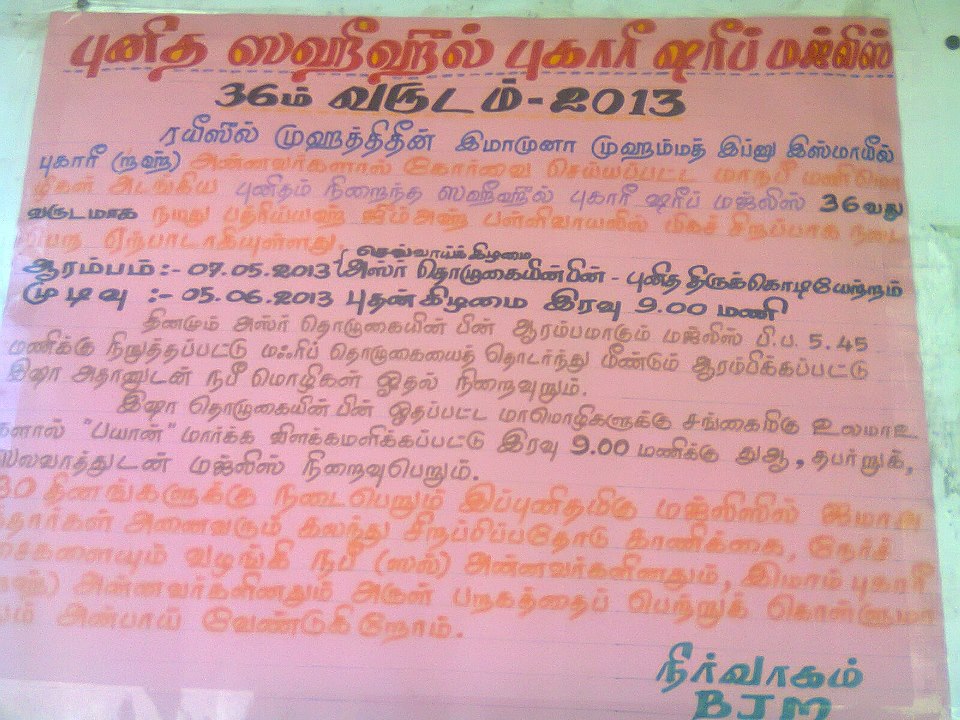 புனித ஸஹீஹுல் புகாரீ ஷரீப் மஜ்லிஸ்
36ம் வருடம் - 2013
ரயீஸுல் முஹத்திதீன் இமாமுனா முஹம்மத் இப்னு இஸ்மாயீல்
புகாரீ (றஹ்) அன்னவர்களால் கோர்வை செய்யப்பட்ட மாநபீ மணிமொ
ழிகள் அடங்கிய புனிதம் நிறைந்த ஸஹீஹுல் புகாரீ ஷரீப் மஜ்லிஸ் 36வது
வருடமாக நமது பத்ரிய்யஹ் ஜும்அஹ் பள்ளிவாயலில் மிகச் சிறப்பாக நடை
பெற ஏற்பாடாகியுள்ளது.
செவ்வாய்க்கிழமை
ஆரம்பம் :- 07.05.2013 அஸ்ர் தொழுகையின்பின் - புனித திருக்கொடியேற்றம்
முடிவு :- 05.06.2013 புதன்கிழமை இரவு 9.00 மணி
தினமும் அஸ்ர் தொழுகையின் பின் ஆரம்பமாகும் மஜ்லிஸ் பி.ப. 5.45
மணிக்கு நிறுத்தப்பட்டு மஃரிப் தொழுகையைத் தொடர்ந்து மீண்டும் ஆரம்பிக்கப்பட்டு
இஷா அதானுடன் நபீ மொழிகள் ஓதல் நிறைவுறும்.
இஷா தொழுகையின் பின் ஓதப்பட்ட மாமொழிகளுக்கு சங்கைமிகு உலமாஉ
களால் "பயான்" மார்க்க விளக்கமளிக்கப்பட்டு இரவு 9.00 மணிக்கு துஆ, தபர்றுக்,
ஸலவாத்துடன் மஜ்லிஸ் நிறைவுபெறும்.
30 தினங்களுக்கு நடைபெறும் இப்புனிதமிகு மஜ்லிஸில் ஜமாஅ
த்தார்கள் அனைவரும் கலந்து சிறப்பிப்பதோடு காணிக்கை, நேர்ச்
சைகளையும் வழங்கி நபீ (ஸல்) அன்னவர்களினதும், இமாம் புகாரீ
(றஹ்) அன்னவர்களினதும் அருள் பறகத்தைப் பெற்றுக் கொள்ளுமா
றும் அன்பாய் வேண்டுகிறோம்.
நிர்வாகம்
BJM